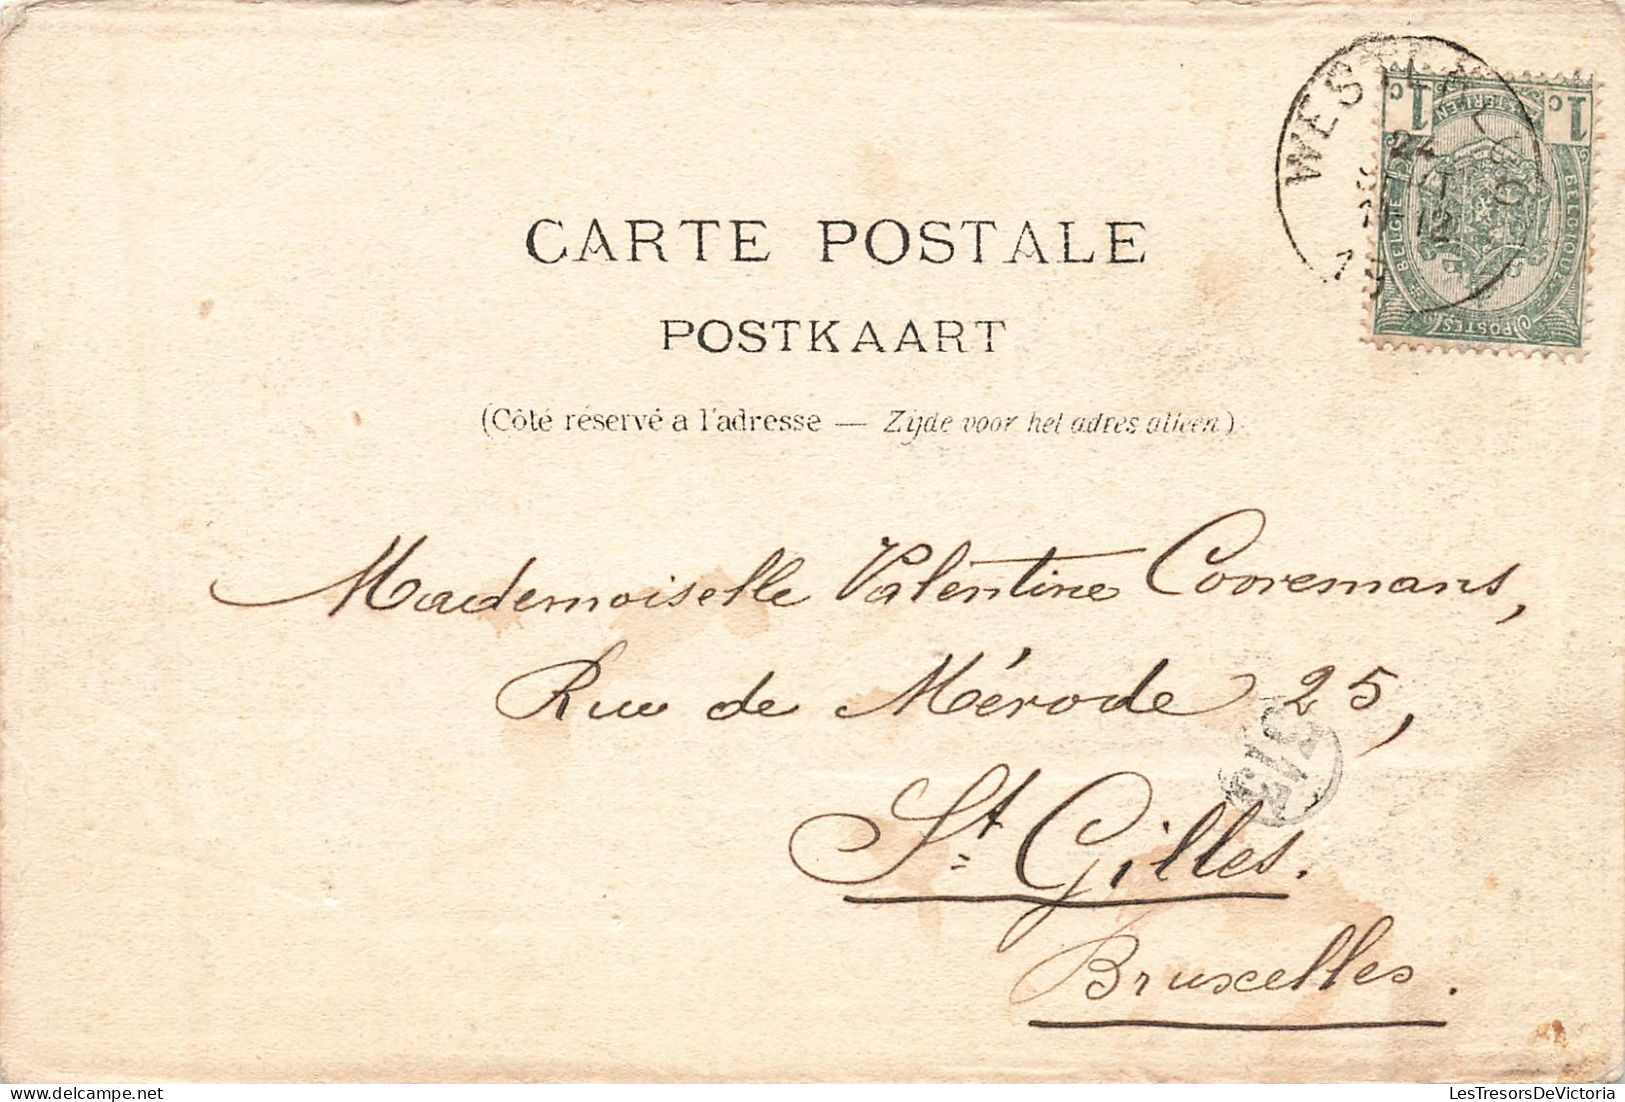 CARTE POSTALE
POSTKAART
(Côté réservé a l'adresse — Zijde voor het adres alleen)
Mademoiselle Valentine Cooremans,
Rue de Mérode 25,
St Gilles.
Bruxelles.
WESTERLOO
22
12
1c 1c
BELGIE BELGIQUE
POSTES
LesTresorsDeVictoria